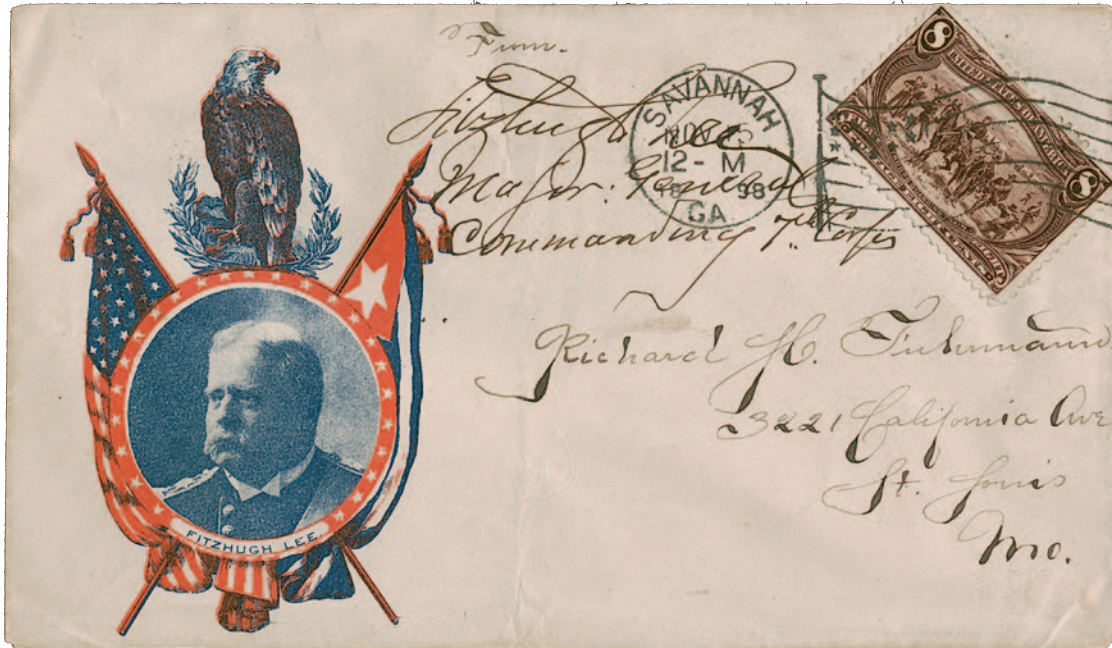 From.
Fitzhugh Lee
Major: General
Commanding 7th Corps
SAVANNAH
NOV
12-M
98
GA
8
UNITED STATES OF AMERICA
8
FITZHUGH LEE
Richard H. Fuhrmann
3221 California Ave
St. Louis
Mo.